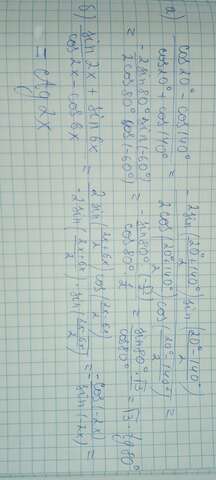 а) (cos20° - cos140°)/(cos20° + cos140°) = (-2sin((20°+140°)/2) sin((20°-140°)/2))/(2cos((20°+140°)/2) cos((20°-140°)/2)) =
= (-2sin80° sin(-60°))/(2cos80° cos(-60°)) = (-sin80° · (-√3/2))/(cos80° · 1/2) = (sin80° · √3)/cos80° = √3 · tg80°
б) (sin2x + sin6x)/(cos2x - cos6x) = (2sin((2x+6x)/2) cos((2x-6x)/2))/(-2sin((2x+6x)/2) · sin((2x-6x)/2)) = (-cos(-2x))/(sin(-2x)) =
= ctg2x